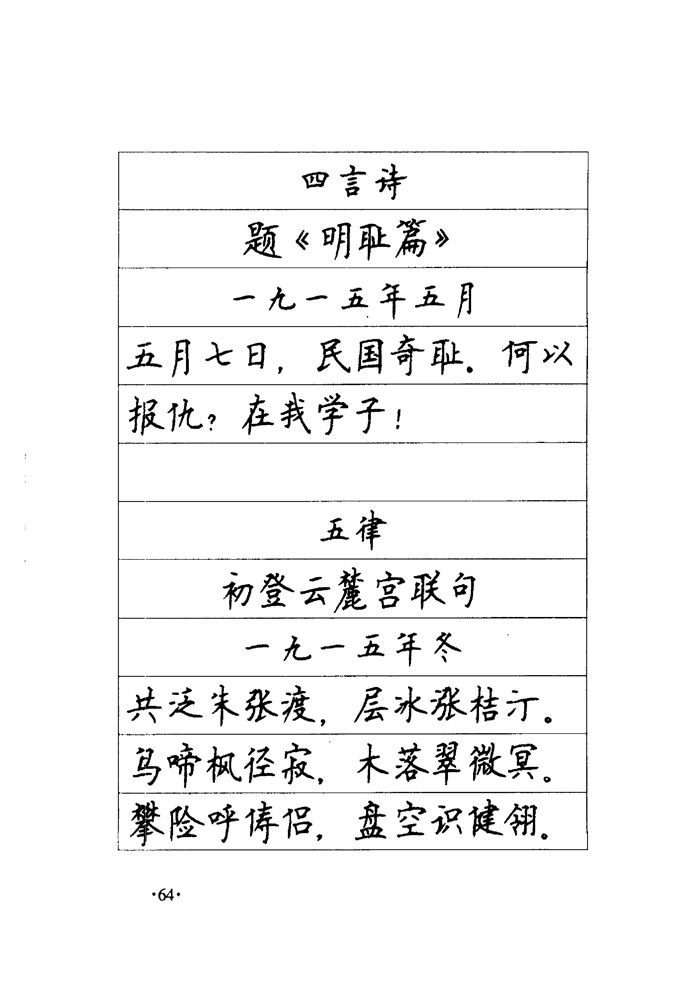 四言诗
题《明耻篇》
一九一五年五月
五月七日，民国奇耻。何以
报仇？在我学子！
五律
初登云麓宫联句
一九一五年冬
共泛朱张渡，层冰涨桔汀。
鸟啼枫径寂，木落翠微冥。
攀险呼俦侣，盘空识健翎。
·64·